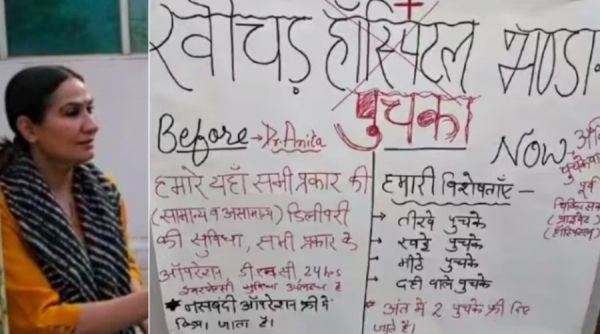 खीचड़ हॉस्पिटल भण्डा
पुचका
Before → Dr. Anita
हमारे यहाँ सभी प्रकार की
(सामान्य व असामान्य) डिलीवरी
की सुविधा, सभी प्रकार के
ऑपरेशन, डी एन सी, 24 hrs
सुविधा उपलब्ध है
* नसबंदी ऑपरेशन फ्री में
किया जाता है।
Now
हमारी विशेषताएँ –
→ तीखे पुचके
→ खट्टे पुचके
→ मीठे पुचके
→ दही वाले पुचके
* अंत में 2 पुचके फ्री दिए
जाते है।
पूर्व